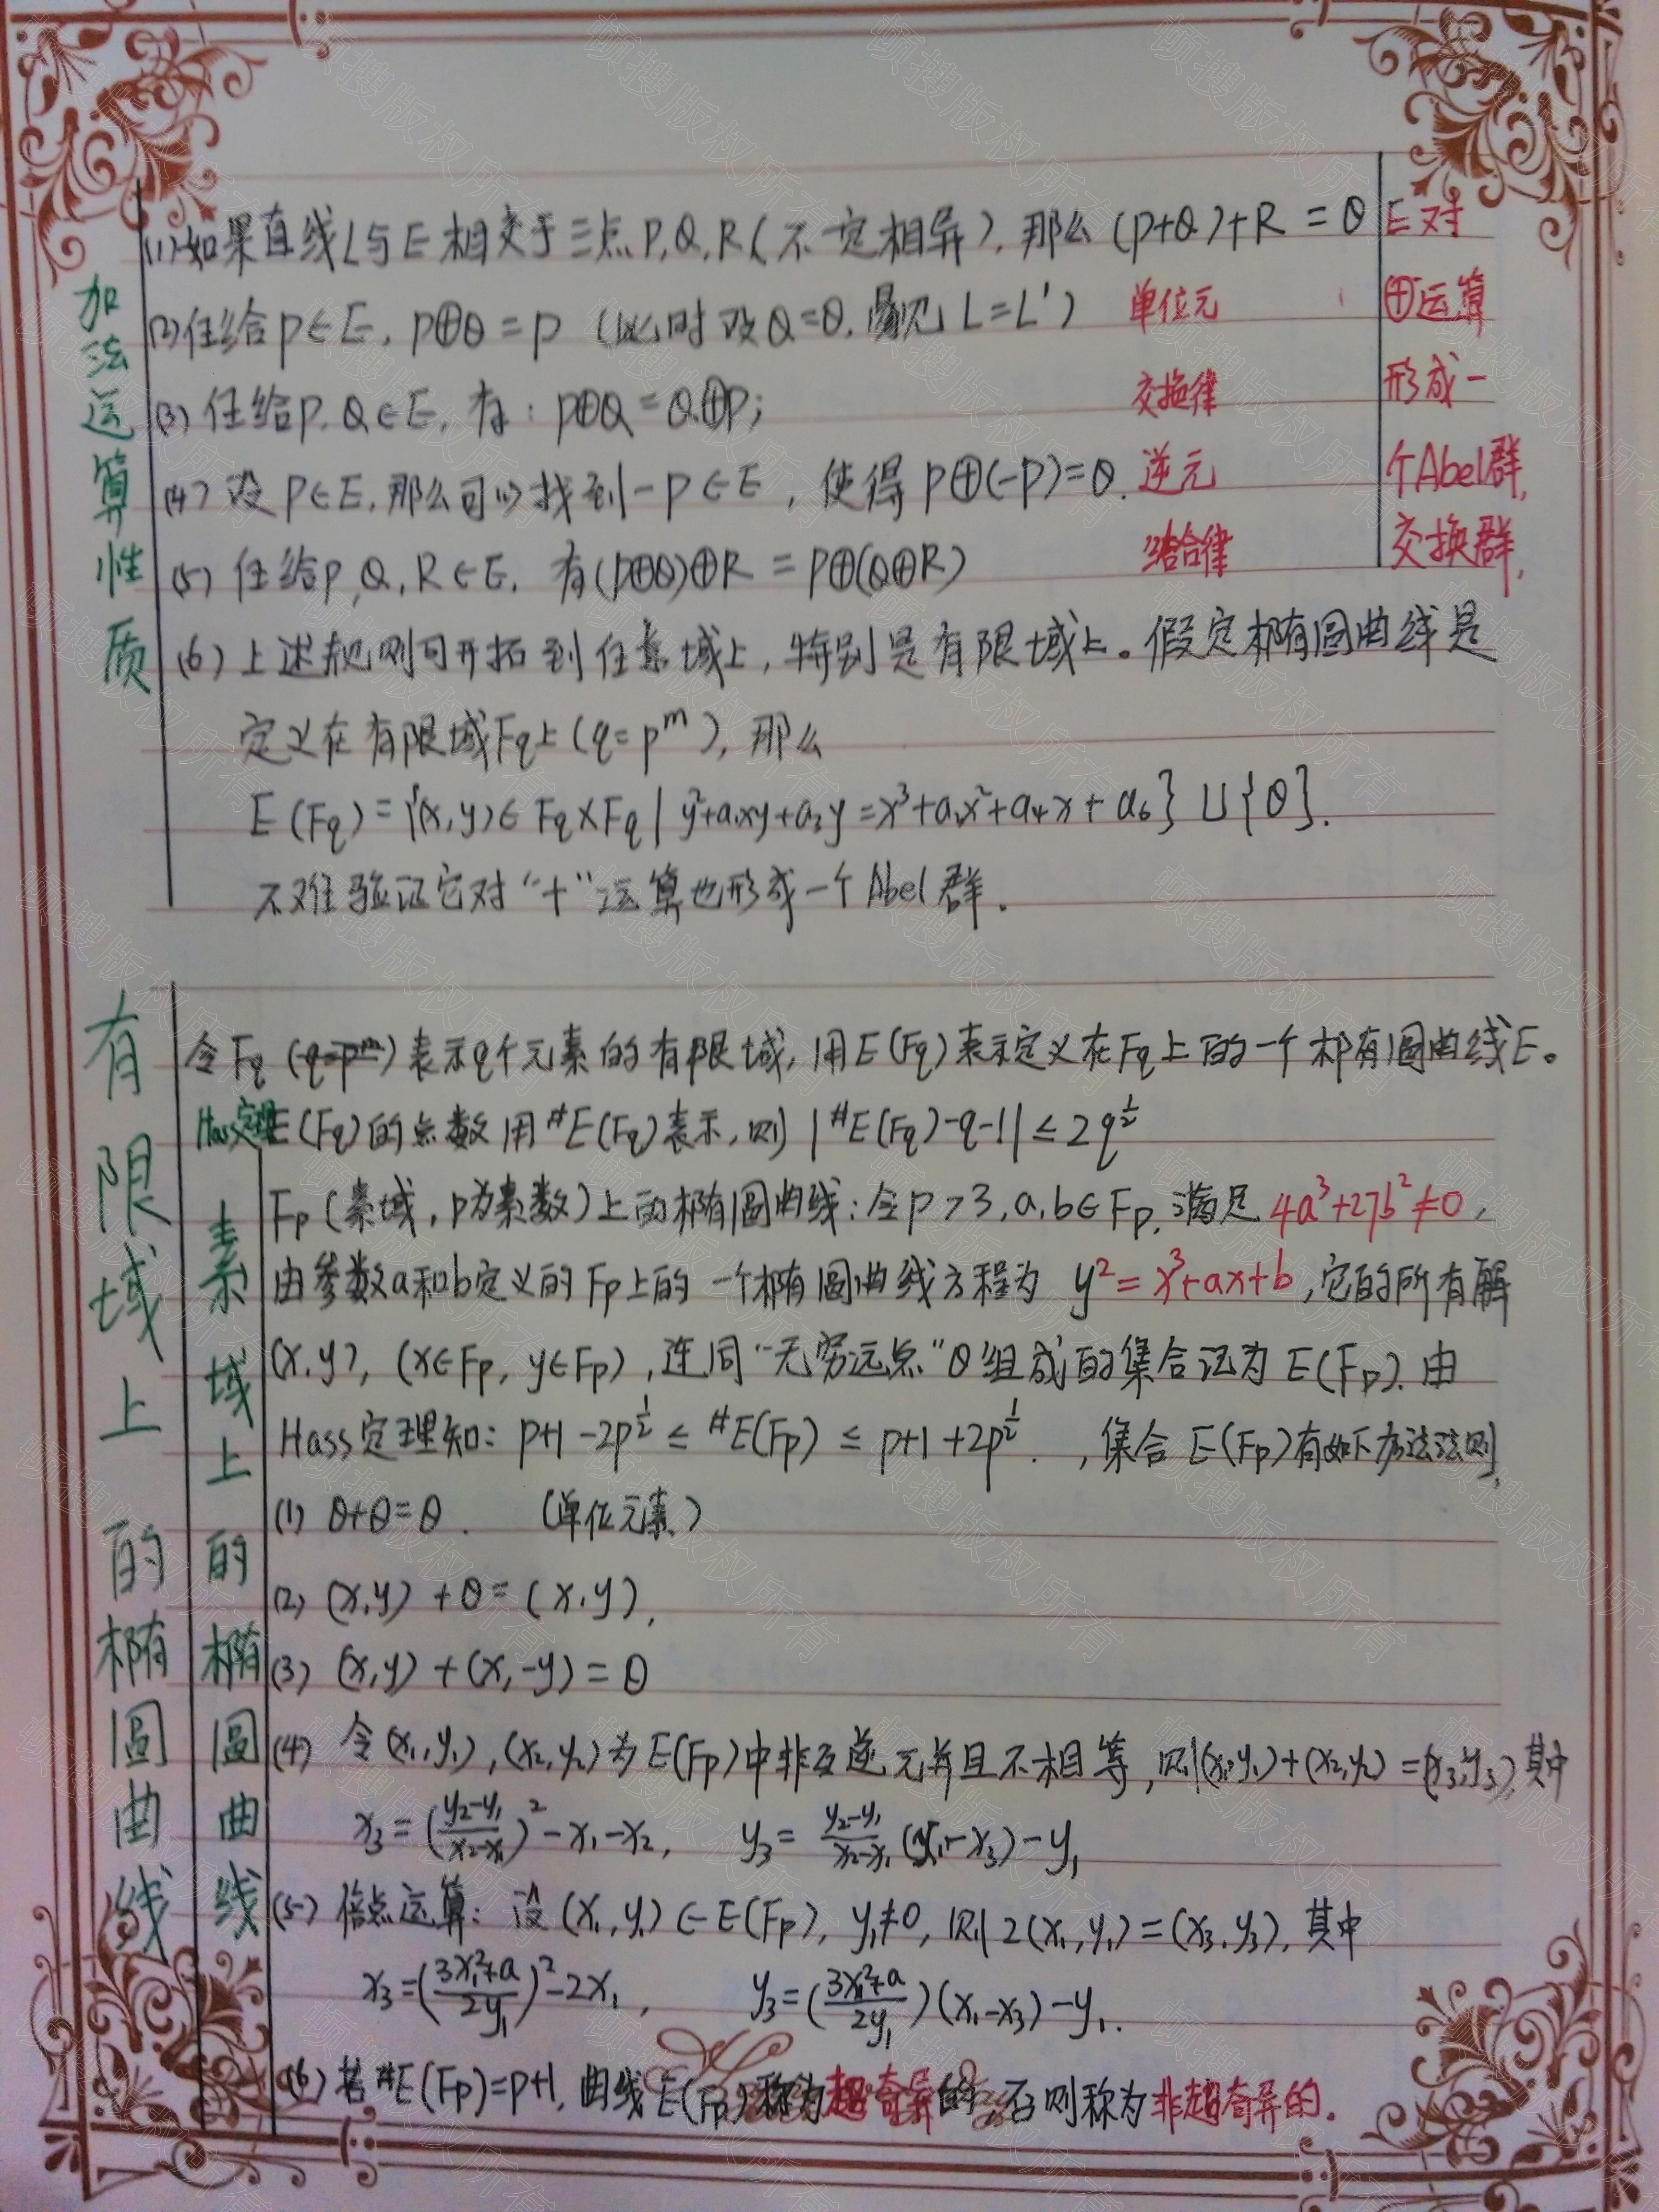 加法运算性质
(1) 如果直线L与E相交于三点P,Q,R(不一定相异),那么 (P+Q)+R = θ
(2) 任给P∈E, P⊕θ=P (此时设Q=θ,易见L=L') 单位元
(3) 任给P,Q∈E,有: P⊕Q=Q⊕P; 交换律
(4) 设P∈E,那么可以找到-P∈E,使得P⊕(-P)=θ. 逆元
(5) 任给P,Q,R∈E,有(P⊕Q)⊕R = P⊕(Q⊕R) 结合律
E对
⊕运算
形成一
个Abel群,
交换群,
(6) 上述规则可开拓到任意域上,特别是有限域上。假定椭圆曲线是
定义在有限域Fq上(q=p^m),那么
E(Fq)={(x,y)∈Fq×Fq | y²+a₁xy+a₃y=x³+a₂x²+a₄x+a₆}∪{θ}.
不难验证它对“+”运算也形成一个Abel群.
有限域上的椭圆曲线
令Fq (q=p^m)表示q个元素的有限域,用E(Fq)表示定义在Fq上的一个椭圆曲线E。
Hass定理 E(Fq)的点数用#E(Fq)表示,则 |#E(Fq)-q-1| ≤ 2q^½
素域上的椭圆曲线
Fp(素域,p为素数)上的椭圆曲线:令p>3,a,b∈Fp,满足 4a³+27b²≠0,
由参数a和b定义的Fp上的一个椭圆曲线方程为 y²=x³+ax+b,它的所有解
(x,y),(x∈Fp, y∈Fp),连同“无穷远点”θ组成的集合记为E(Fp).由
Hass定理知: p+1-2p^½ ≤ #E(Fp) ≤ p+1+2p^½. ,集合E(Fp)有如下加法法则
(1) θ+θ=θ. (单位元素)
(2) (x,y)+θ=(x,y).
(3) (x,y)+(x,-y)=θ
(4) 令(x₁,y₁),(x₂,y₂)为E(Fp)中非互逆元并且不相等,则(x₁,y₁)+(x₂,y₂)=(x₃,y₃),其中
x₃=((y₂-y₁)/(x₂-x₁))²-x₁-x₂, y₃=(y₂-y₁)/(x₂-x₁)(x₁-x₃)-y₁
(5) 倍点运算:设(x₁,y₁)∈E(Fp), y₁≠0,则2(x₁,y₁)=(x₃,y₃),其中
x₃=((3x₁²+a)/(2y₁))²-2x₁, y₃=((3x₁²+a)/(2y₁))(x₁-x₃)-y₁.
(6) 若#E(Fp)=p+1,曲线E(Fp)称为超奇异的,否则称为非超奇异的.